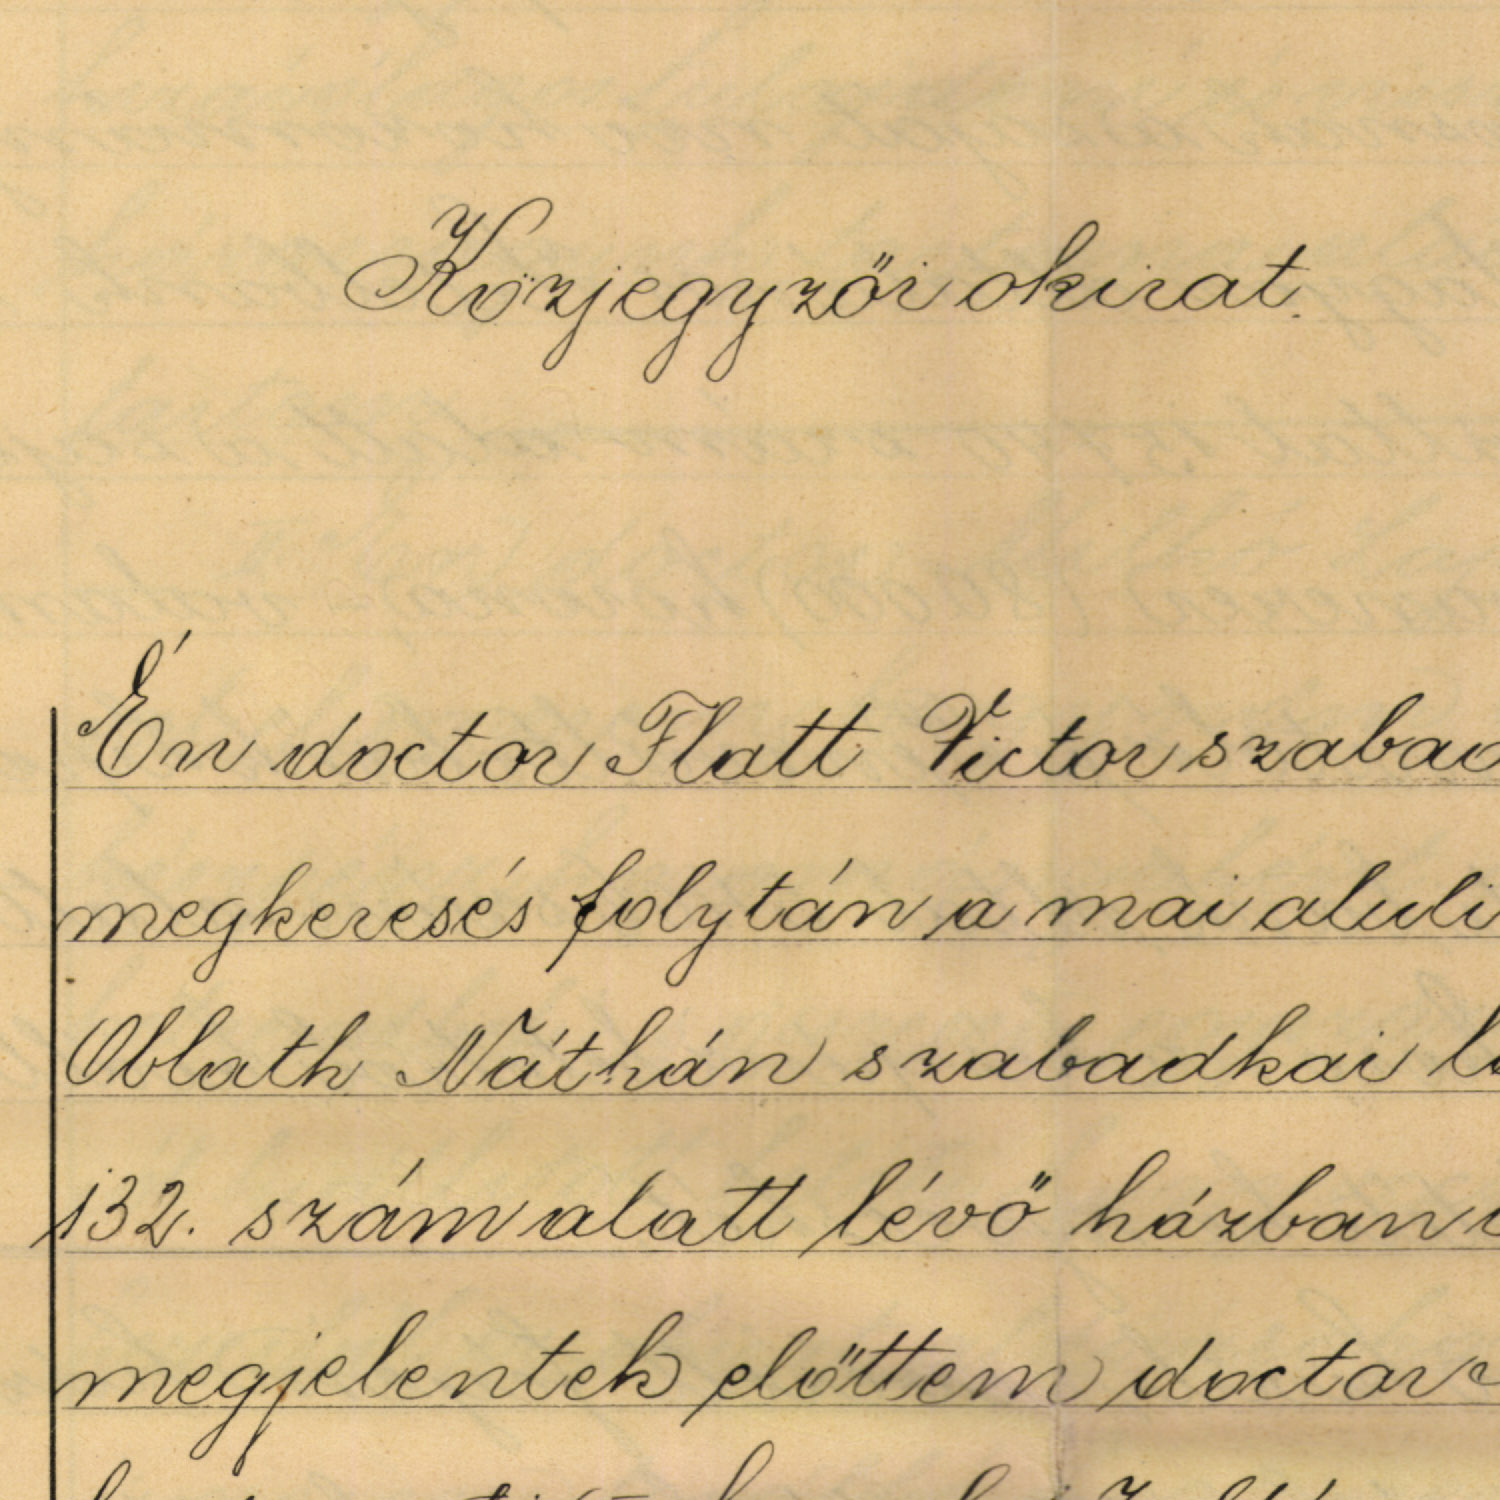 Közjegyzői okirat.
Én doctor Flatt Victor szabad
megkeresés folytán a mai aluli
Oblath Náthán szabadkai
132. szám alatt lévő házban
megjelentek előttem doctor